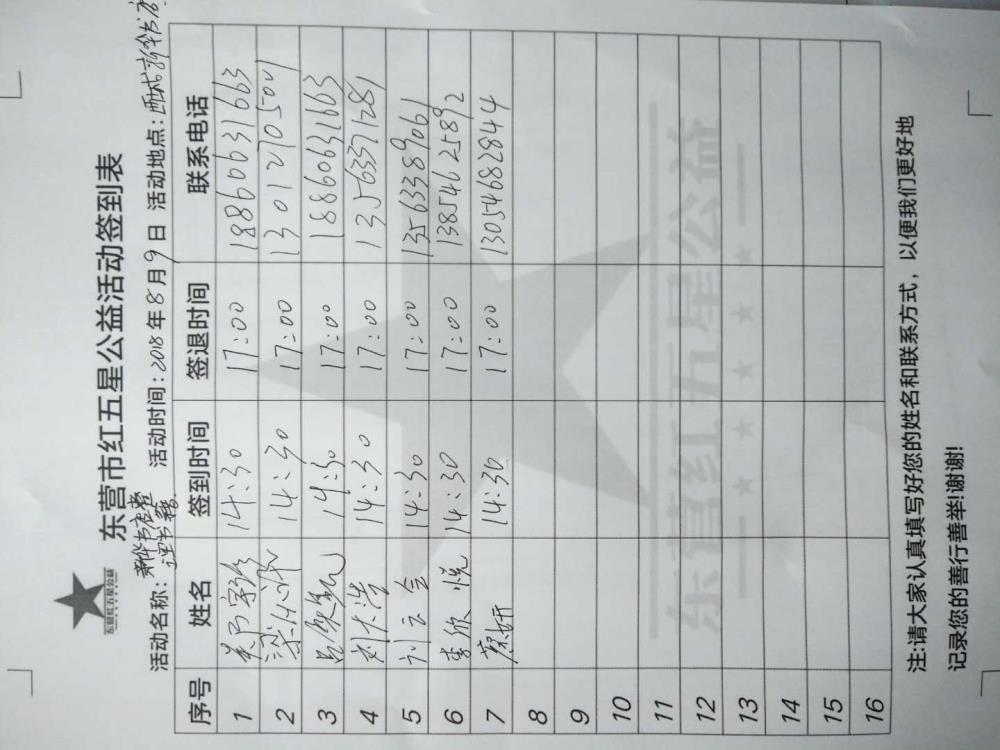 东营市红五星公益活动签到表
东营红五星公益
活动名称：新华书店整理书籍 活动时间：2018年8月9日 活动地点：西城新华书店
序号 姓名 签到时间 签退时间 联系电话
1 14:30 17:00 18860631663
2 14:30 17:00 13012705001
3 14:30 17:00 18860631663
4 刘天浩 14:30 17:00 13563371281
5 刘云会 14:30 17:00 13563389061
6 李欣悦 14:30 17:00 13854625892
7 蔡妍 14:30 17:00 13054682844
8
9
10
11
12
13
14
15
16
东营红五星公益
注:请大家认真填写好您的姓名和联系方式，以便我们更好地
记录您的善行善举!谢谢!